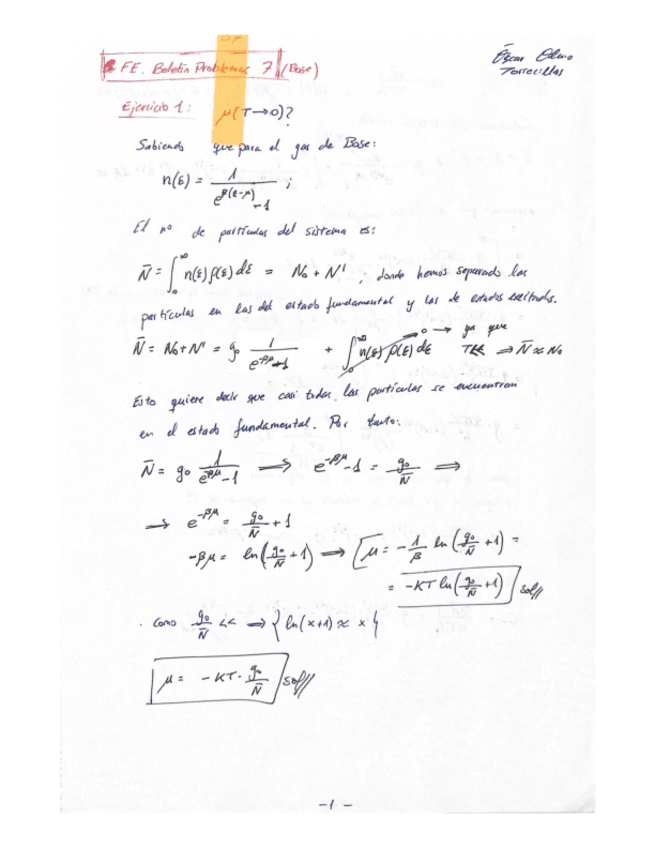 FE. Boletín Problemas 7 (Bose)
Óscar Olmo
Torrecillas
Ejercicio 1: μ(T→0)?
Sabiendo que para el gas de Bose:
n(ε) = 1 / (e^{β(ε-μ)} - 1) ;
El nº de partículas del sistema es:
N̄ = ∫₀^∞ n(ε) ρ(ε) dε = N₀ + N' ; donde hemos separado las
partículas en las del estado fundamental y las de estados excitados.
N̄ = N₀ + N' = g₀ 1 / (e^{-βμ} - 1) + ∫₀^∞ n(ε) ρ(ε) dε → 0 → ya que T≪ ⇒ N̄ ≈ N₀
Esto quiere decir que casi todas las partículas se encuentran
en el estado fundamental. Por tanto:
N̄ = g₀ 1 / (e^{-βμ} - 1) ⟹ e^{-βμ} - 1 = g₀/N̄ ⟹
⟹ e^{-βμ} = g₀/N̄ + 1
-βμ = ln(g₀/N̄ + 1) ⟹ μ = -1/β ln(g₀/N̄ + 1) =
= -KT ln(g₀/N̄ + 1) sol//
· Como g₀/N̄ ≪ ⟹ {ln(x+1) ≈ x}
μ = -KT · g₀/N̄ sol//
-1-